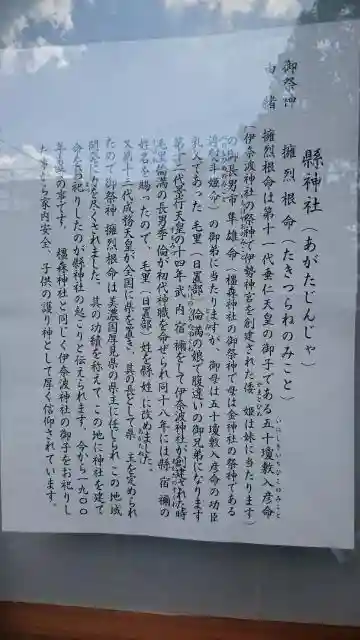 縣神社(あがたじんじゃ)
御祭神 擁烈根命(たきつらねのみこと)
由緒 擁烈根命は第十一代垂仁天皇の御子である五十瓊敷入彦命
いにしきいりひこのみこと
(伊奈波神社の祭神で伊勢神宮を創建された倭姫は妹に当たります)
やまとひめ
の御長男市隼雄命(橿森神社の御祭神で母は金神社の祭神である
渟熨斗姫命)の御弟に当たりますが、御母は五十瓊敷入彦命の功臣
乳人であった毛里(日置部)倫満の娘で腹違いの御兄弟になります
第十二代景行天皇の十四年武内宿祢をして伊奈波神社が創建された時
毛里倫満の長男季倫が初代神職を命ぜられ同十八年には縣宿禰の
姓名を賜ったので、毛里(日置部)姓を縣姓に改めました。
又第十三代成務天皇が全国に県を置き、其の長として県主を定められ
たので御祭神擁烈根命は美濃国厚見県の県主に任じられこの地域
開発に力を尽くされました、其の功績を称えてこの地に神社を建て
命をお祀りしたのが縣神社の起こりと伝えられます、今から一九〇〇
年も昔の事です。橿森神社と同じく伊奈波神社の御子をお祀りし
家内安全、子供の護り神として厚く信仰されています。